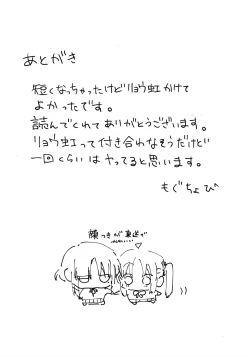 あとがき
短くなっちゃったけどリョウ虹かけて
よかったです。
読んでくれてありがとうございます。
リョウ虹って付き合わなそうだけど
一回くらいはヤってると思います。
もぐちょび
顔つきが真逆で